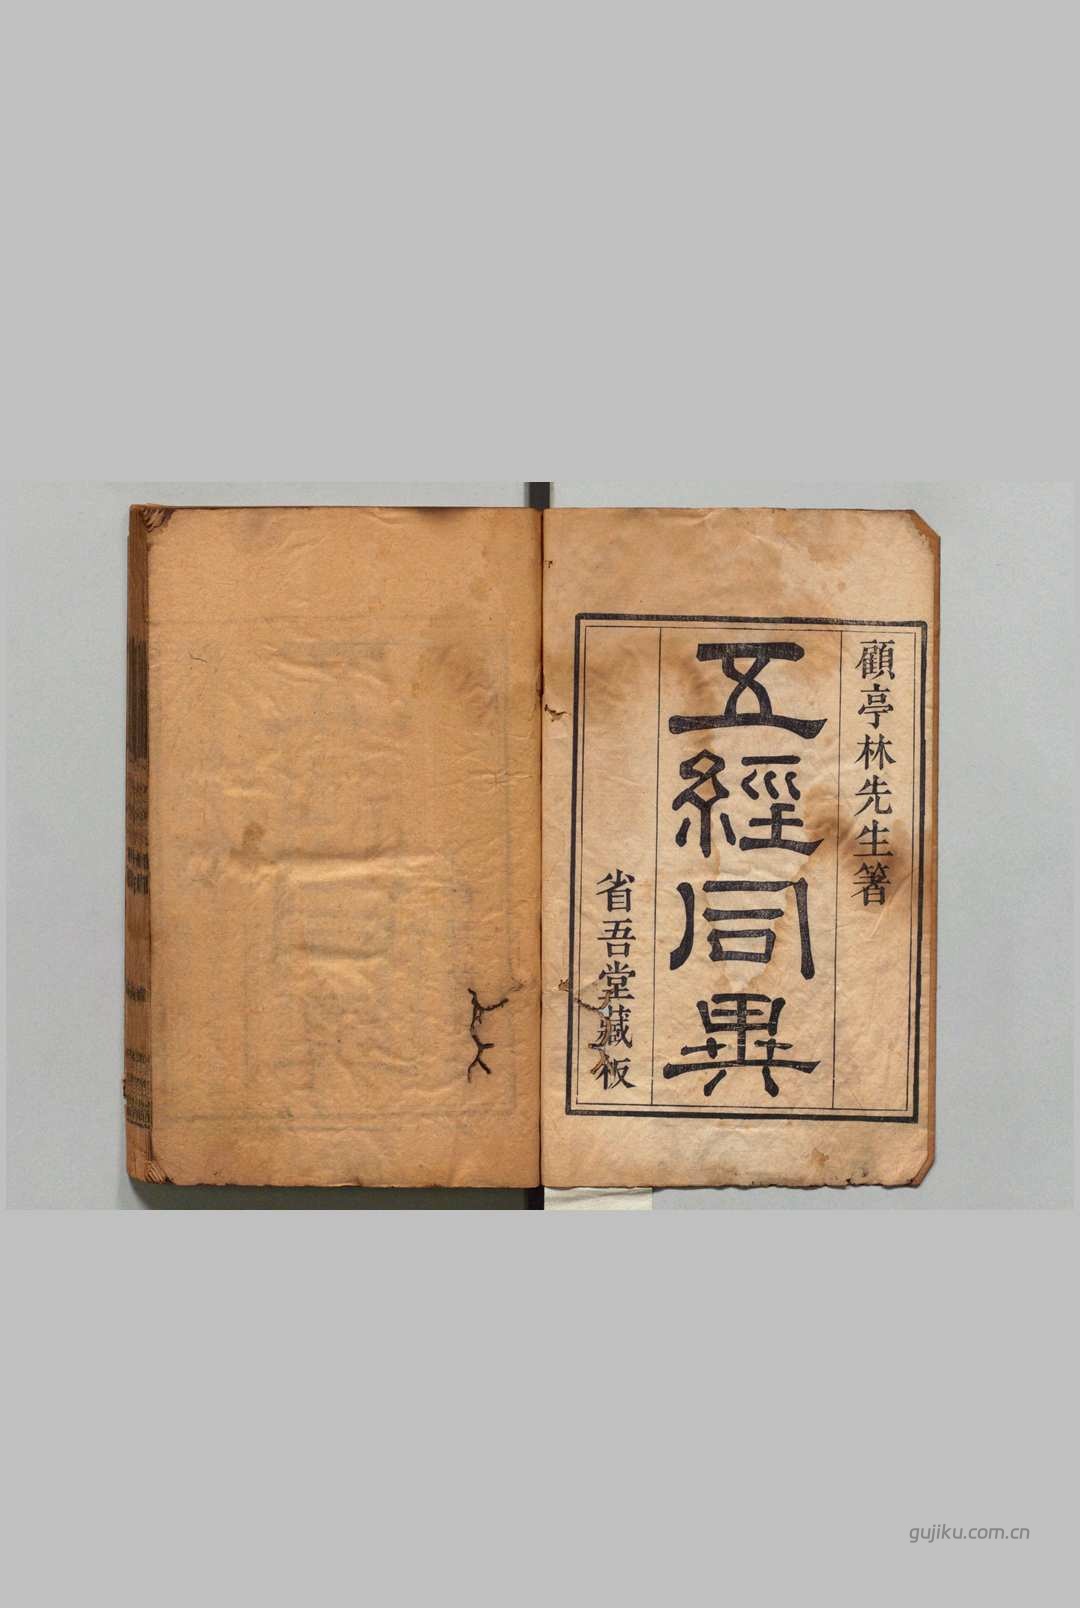 顧亭林先生箸
五經同異
省吾堂藏板
gujiku.com.cn